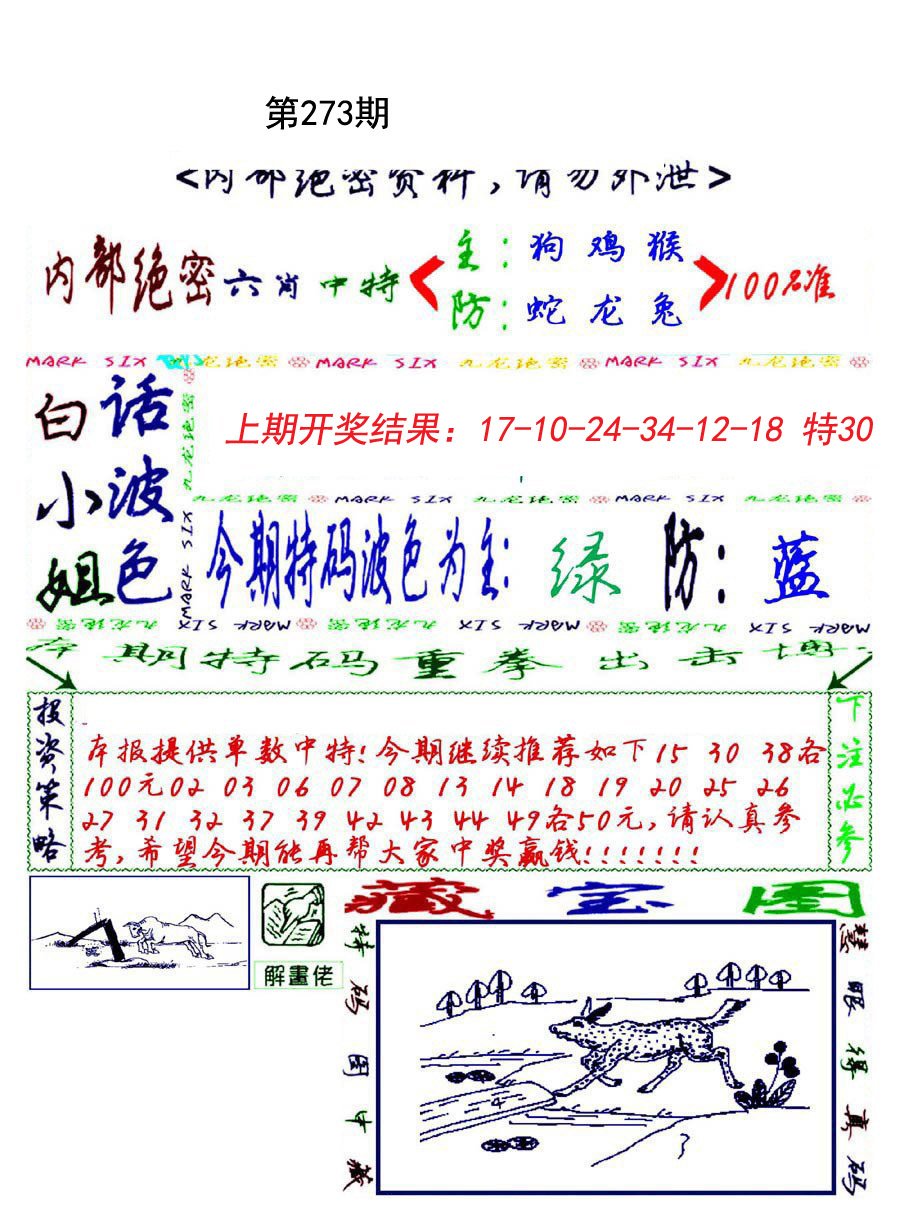 第273期
<内部绝密资料，请勿外泄>
内部绝密六肖中特
主：狗鸡猴
防：蛇龙兔
100%准
MARK SIX 九龙绝密 MARK SIX 九龙绝密 MARK SIX 九龙绝密
白话
小波
姐色
九龙绝密
MARK SIX
上期开奖结果：17-10-24-34-12-18 特30
九龙绝密 MARK SIX 九龙绝密 MARK SIX 九龙绝密
今期特码波色为主：绿 防：蓝
九龙绝密 MARK SIX 九龙绝密 MARK SIX 九龙绝密 MARK SIX
本期特码重拳出击博
投资策略
本报提供单数中特！今期继续推荐如下15 30 38各
100元02 03 06 07 08 13 14 18 19 20 25 26
27 31 32 37 39 42 43 44 49各50元，请认真参
考，希望今期能再帮大家中奖赢钱！！！！！！！
下注必参
解畫佬
藏宝图
特码图中藏
慧眼得真码
4
3